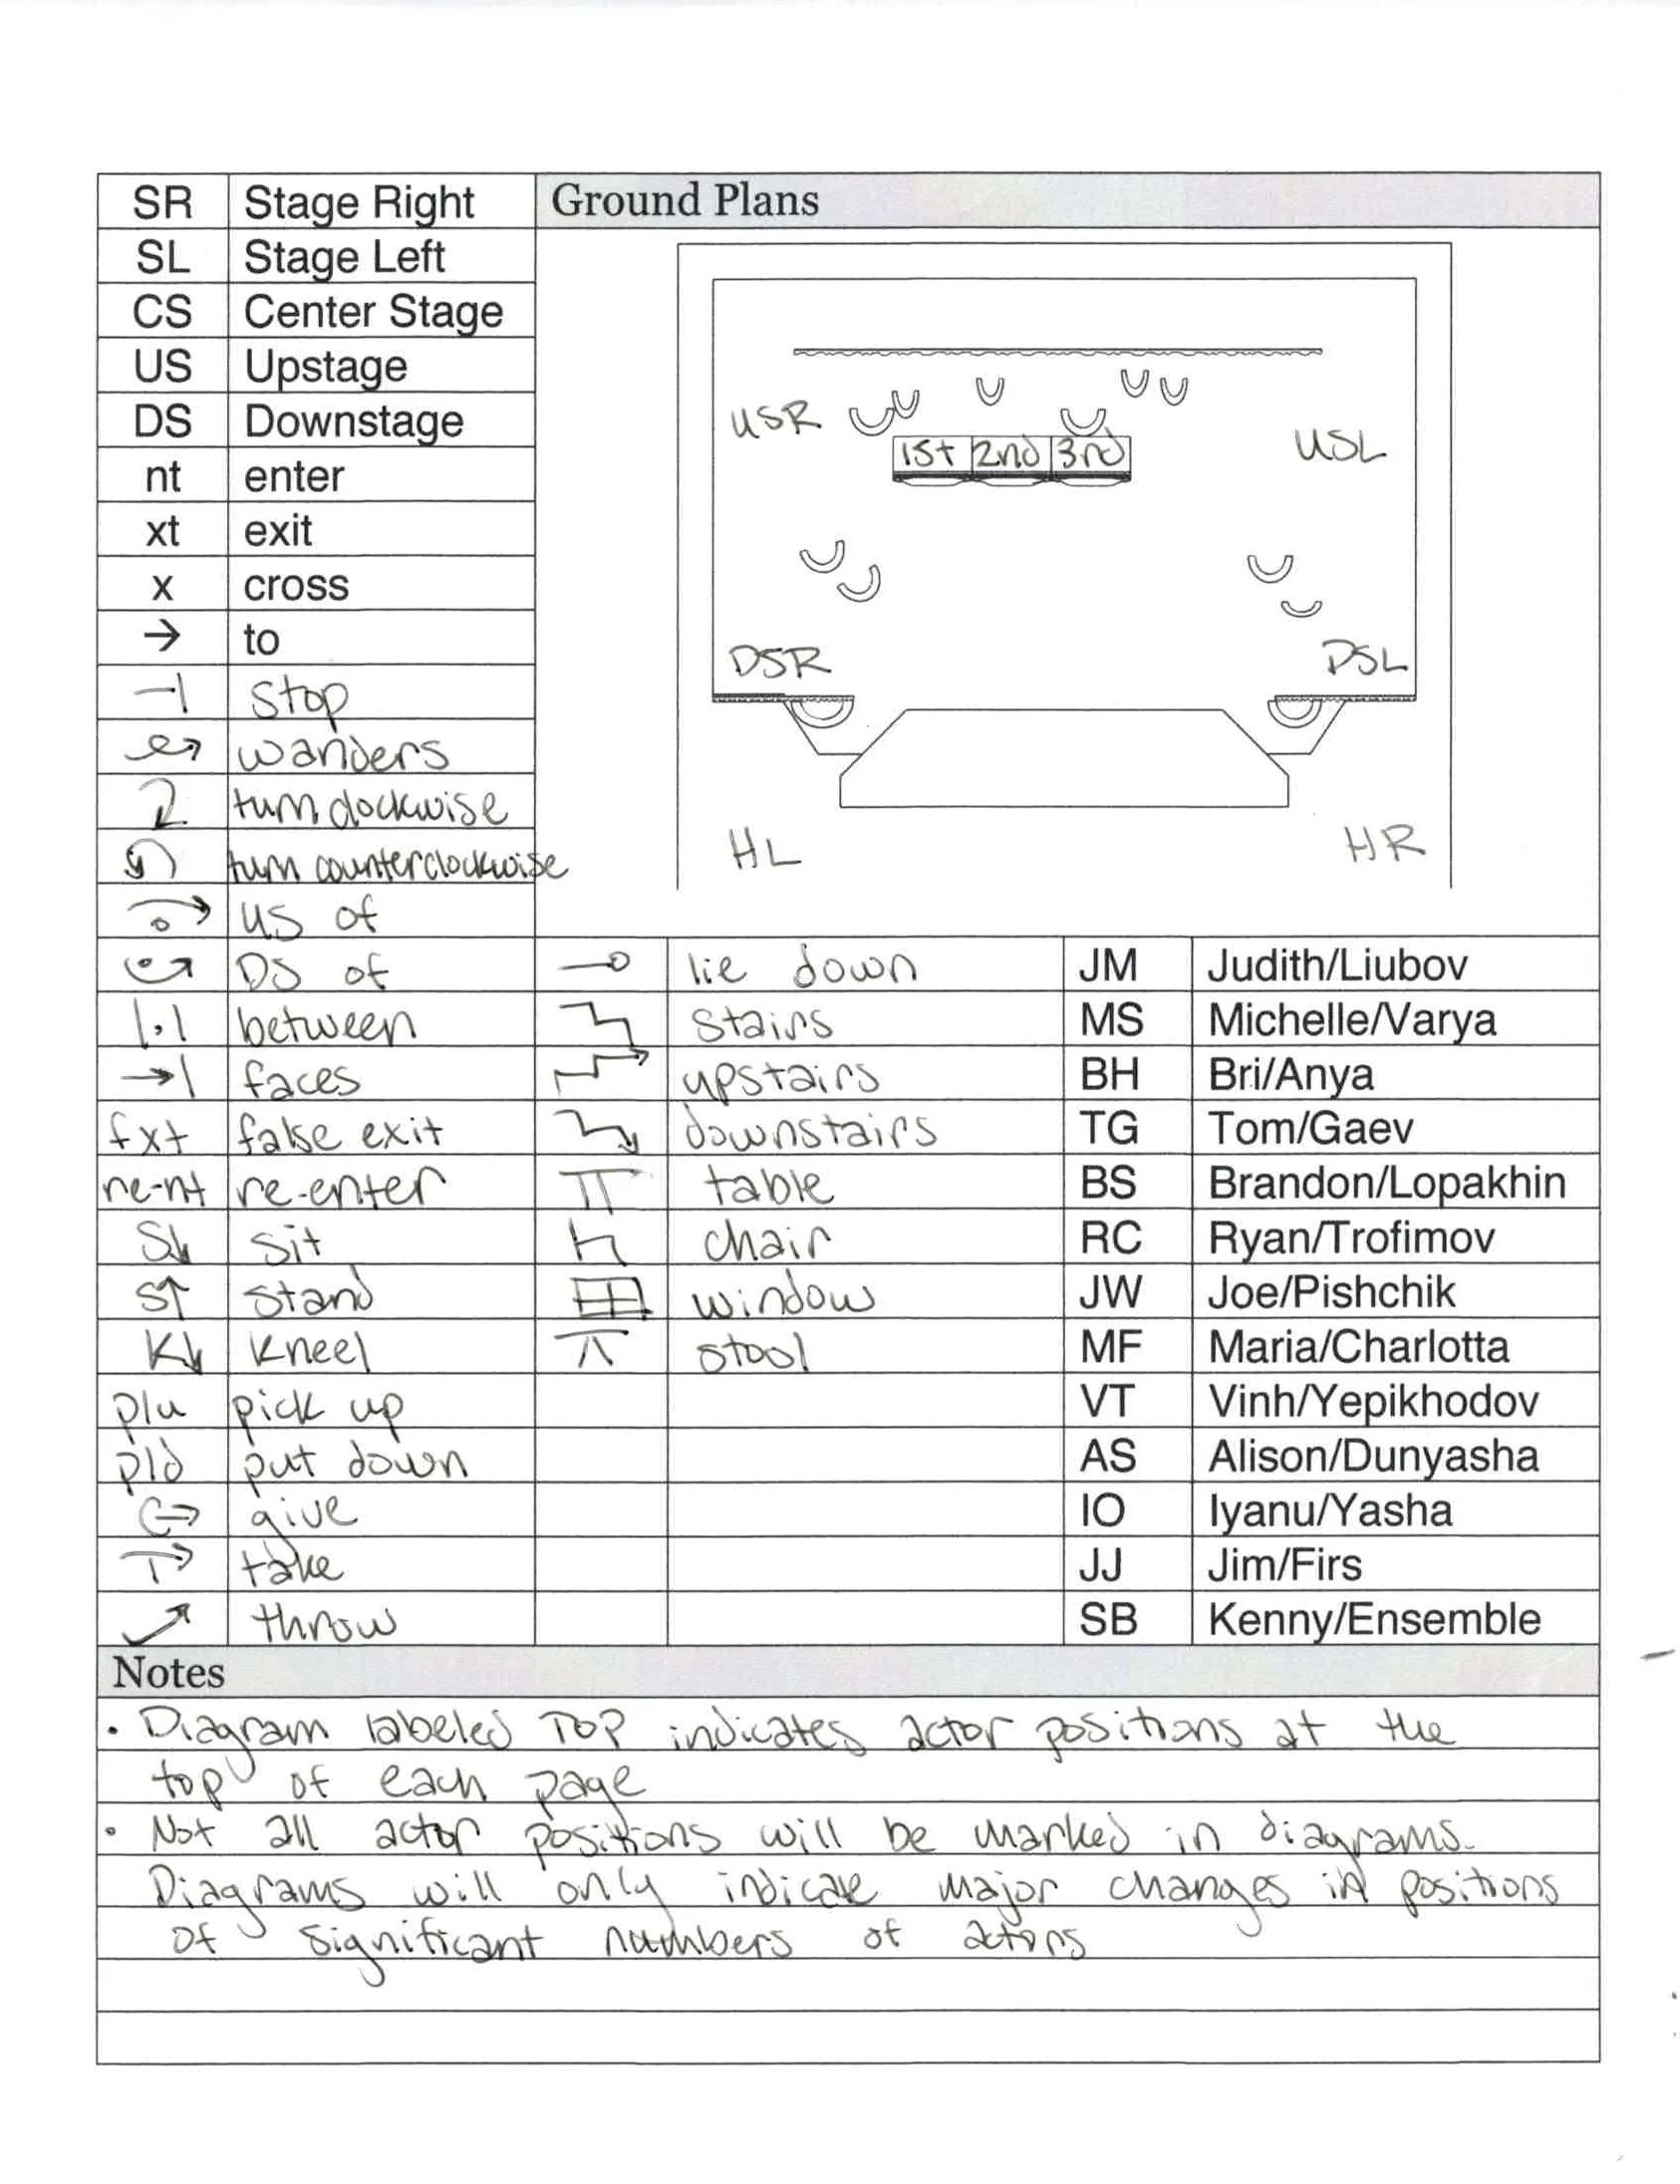 SR Stage Right
SL Stage Left
CS Center Stage
US Upstage
DS Downstage
nt enter
xt exit
x cross
→ to
stop
wanders
turn clockwise
turn counterclockwise
US of
DS of
between
faces
fxt false exit
re-nt re-enter
S↓ sit
S↑ stand
K↓ kneel
plu pick up
pld put down
G→ give
T→ take
throw
Ground Plans
USR
USL
1st 2nd 3rd
DSR
DSL
HL
HR
lie down
stairs
upstairs
downstairs
table
chair
window
stool
JM Judith/Liubov
MS Michelle/Varya
BH Bri/Anya
TG Tom/Gaev
BS Brandon/Lopakhin
RC Ryan/Trofimov
JW Joe/Pishchik
MF Maria/Charlotta
VT Vinh/Yepikhodov
AS Alison/Dunyasha
IO Iyanu/Yasha
JJ Jim/Firs
SB Kenny/Ensemble
Notes
• Diagram labeled TOP indicates actor positions at the
top of each page
• Not all actor positions will be marked in diagrams.
Diagrams will only indicate major changes in positions
of significant numbers of actors